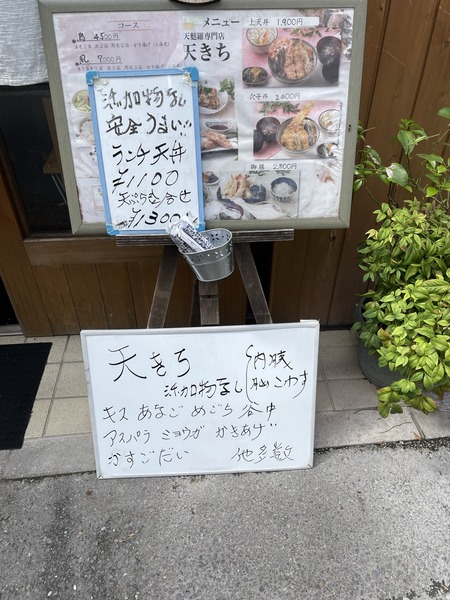 コース
4,500円
9000円
メニュー
天麩羅専門店
天きち
上天丼 1,900円
穴子丼 2,000円
御膳 2,800円
添加物なし
安全うまい!!
ランチ天丼
¥1100
天ぷら盛合せ
¥1300
天きち
添加物なし
内臓
こわす
キス あなご めごち 谷中
アスパラ ミョウガ かきあげ
かすごだい 他多数